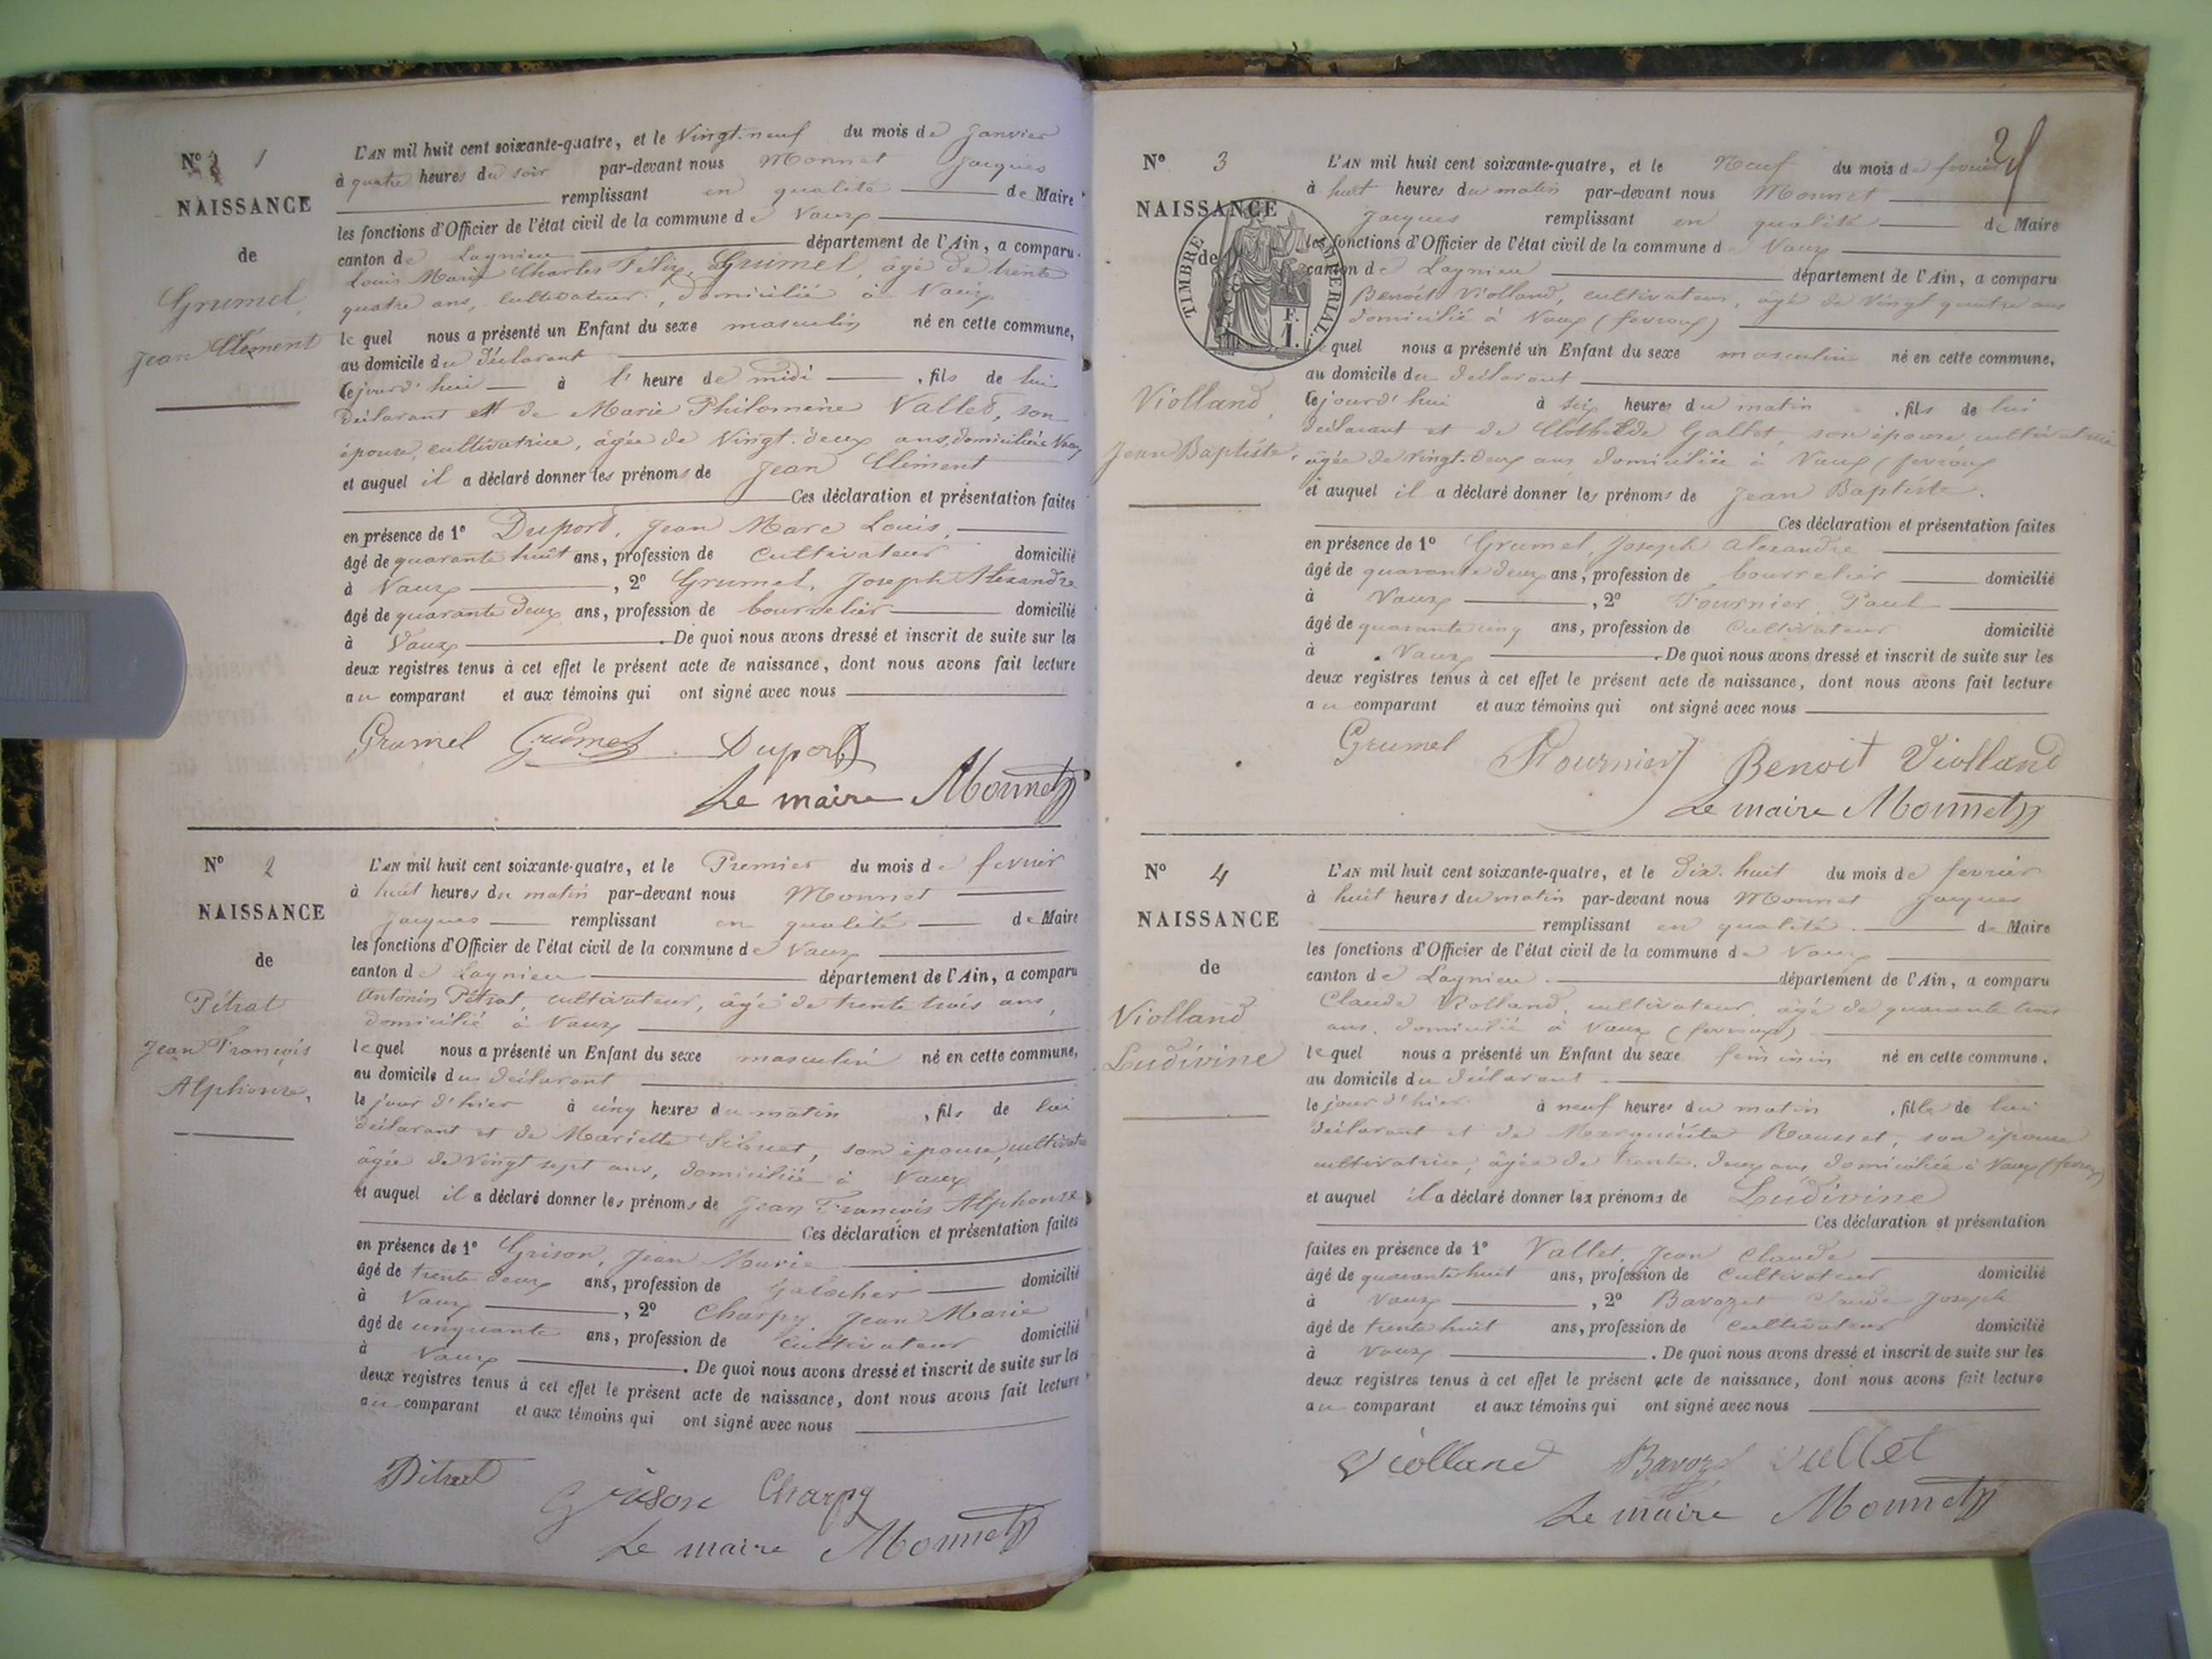 N° 1
NAISSANCE
de
Grumel,
Jean Clément
L'AN mil huit cent soixante-quatre, et le Vingt-neuf du mois de Janvier
à quatre heures du soir par-devant nous Monnet Jacques
remplissant en qualité de Maire
les fonctions d'Officier de l'état civil de la commune de Vaux
canton de Lagnieu département de l'Ain, a comparu
Louis Marie Charles Félix Grumel, âgé de trente
quatre ans, cultivateur, domicilié à Vaux
lequel nous a présenté un Enfant du sexe masculin né en cette commune,
au domicile du déclarant
cejourd'hui à l'heure de midi, fils de lui
déclarant et de Marie Philomène Vallet, son
épouse, cultivatrice, âgée de Vingt-deux ans, domiciliée Vaux
et auquel il a déclaré donner les prénoms de Jean Clément
Ces déclaration et présentation faites
en présence de 1° Duport, Jean Marc Louis,
âgé de quarante huit ans, profession de Cultivateur domicilié
à Vaux, 2° Grumel, Joseph Alexandre
âgé de quarante deux ans, profession de bourrelier domicilié
à Vaux. De quoi nous avons dressé et inscrit de suite sur les
deux registres tenus à cet effet le présent acte de naissance, dont nous avons fait lecture
au comparant et aux témoins qui ont signé avec nous
Grumel Grumel Duport
Le maire Monnet
N° 2
NAISSANCE
de
Pétrat
Jean François
Alphonse,
L'AN mil huit cent soixante-quatre, et le Premier du mois de fevrier
à huit heures du matin par-devant nous Monnet
Jacques remplissant en qualité de Maire
les fonctions d'Officier de l'état civil de la commune de Vaux
canton de Lagnieu département de l'Ain, a comparu
Antonin Pétrat, cultivateur, âgé de trente trois ans,
domicilié à Vaux
lequel nous a présenté un Enfant du sexe masculin né en cette commune,
au domicile du déclarant
le jour d'hier à cinq heures du matin, fils de lui
déclarant et de Mariette son épouse, cultivatrice
âgée de Vingt sept ans, domiciliée à Vaux
et auquel il a déclaré donner les prénoms de Jean François Alphonse
Ces déclaration et présentation faites
en présence de 1° Grison, Jean Marie
âgé de trente deux ans, profession de Galocher domicilié
à Vaux, 2° Charpy, Jean Marie
âgé de cinquante ans, profession de Cultivateur domicilié
à Vaux. De quoi nous avons dressé et inscrit de suite sur les
deux registres tenus à cet effet le présent acte de naissance, dont nous avons fait lecture
au comparant et aux témoins qui ont signé avec nous
Pétrat
Grison Charpy
Le maire Monnet
N° 3
NAISSANCE
de
TIMBRE IMPÉRIAL
1 F.
Violland,
Jean Baptiste,
L'AN mil huit cent soixante-quatre, et le Neuf du mois de fevrier
à huit heures du matin par-devant nous Monnet
Jacques remplissant en qualité de Maire
les fonctions d'Officier de l'état civil de la commune de Vaux
canton de Lagnieu département de l'Ain, a comparu
Benoit Violland, cultivateur, âgé de Vingt quatre ans
domicilié à Vaux (fevroux)
lequel nous a présenté un Enfant du sexe masculin né en cette commune,
au domicile du déclarant
cejourd'hui à six heures du matin, fils de lui
déclarant et de Clothilde Gallet, son épouse, cultivatrice
âgée de Vingt-deux ans, domiciliée à Vaux (fevroux
et auquel il a déclaré donner les prénoms de Jean Baptiste.
Ces déclaration et présentation faites
en présence de 1° Grumel, Joseph Alexandre
âgé de quarante deux ans, profession de bourrelier domicilié
à Vaux, 2° Fournier, Paul
âgé de quarante cinq ans, profession de Cultivateur domicilié
à Vaux. De quoi nous avons dressé et inscrit de suite sur les
deux registres tenus à cet effet le présent acte de naissance, dont nous avons fait lecture
au comparant et aux témoins qui ont signé avec nous
Grumel Fournier Benoit Violland
Le maire Monnet
N° 4
NAISSANCE
de
Violland
Ludivine
L'AN mil huit cent soixante-quatre, et le Dix-huit du mois de fevrier
à huit heures du matin par-devant nous Monnet Jacques
remplissant en qualité de Maire
les fonctions d'Officier de l'état civil de la commune de Vaux
canton de Lagnieu département de l'Ain, a comparu
Claude Violland, cultivateur, âgé de quarante trois
ans, domicilié à Vaux (fevroux)
lequel nous a présenté un Enfant du sexe féminin né en cette commune,
au domicile du déclarant
le jour d'hier à neuf heures du matin, fille de lui
déclarant et de Marguerite Rousset, son épouse
cultivatrice, âgée de trente-deux ans, domiciliée à Vaux
et auquel il a déclaré donner les prénoms de Ludivine
Ces déclaration et présentation
faites en présence de 1° Vallet, Jean Claude
âgé de quarante huit ans, profession de Cultivateur domicilié
à Vaux, 2° Bavozet Claude Joseph
âgé de trente huit ans, profession de Cultivateur domicilié
à Vaux. De quoi nous avons dressé et inscrit de suite sur les
deux registres tenus à cet effet le présent acte de naissance, dont nous avons fait lecture
au comparant et aux témoins qui ont signé avec nous
Violland Bavozet Vallet
Le maire Monnet